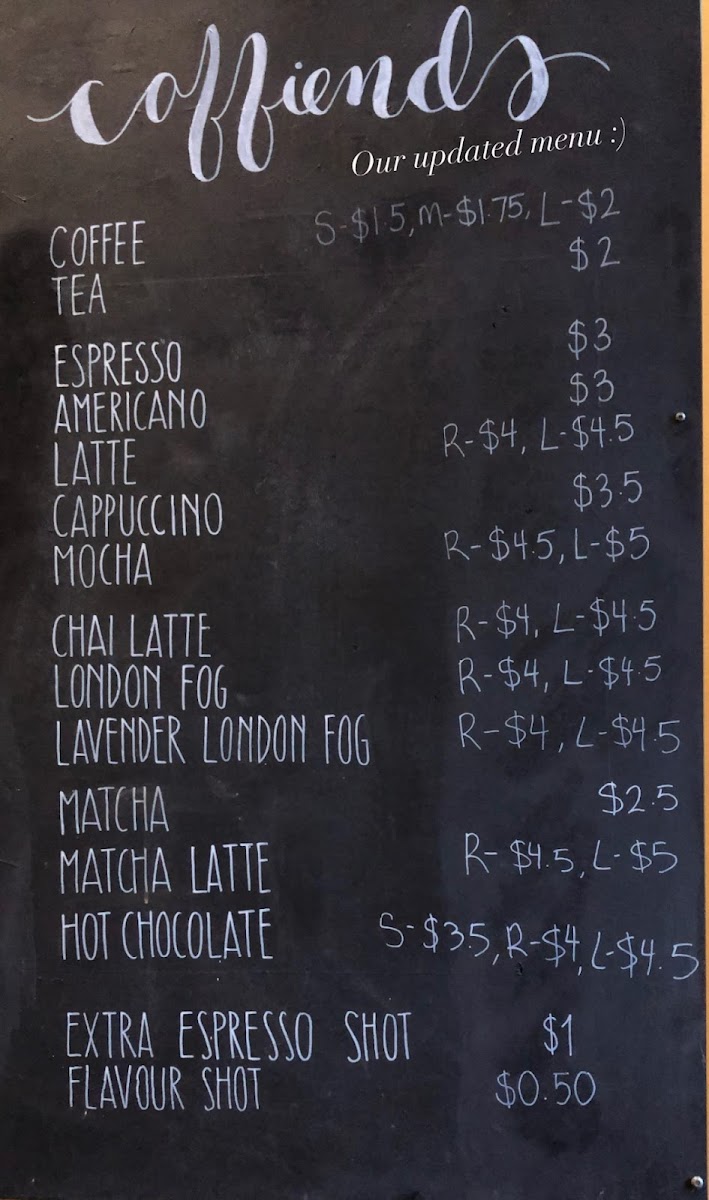 coffiends
Our updated menu :)
COFFEE S-$1.5, M-$1.75, L-$2
TEA $2
ESPRESSO $3
AMERICANO $3
LATTE R-$4, L-$4.5
CAPPUCCINO $3.5
MOCHA R-$4.5, L-$5
CHAI LATTE R-$4, L-$4.5
LONDON FOG R-$4, L-$4.5
LAVENDER LONDON FOG R-$4, L-$4.5
MATCHA $2.5
MATCHA LATTE R-$4.5, L-$5
HOT CHOCOLATE S-$3.5, R-$4, L-$4.5
EXTRA ESPRESSO SHOT $1
FLAVOUR SHOT $0.50